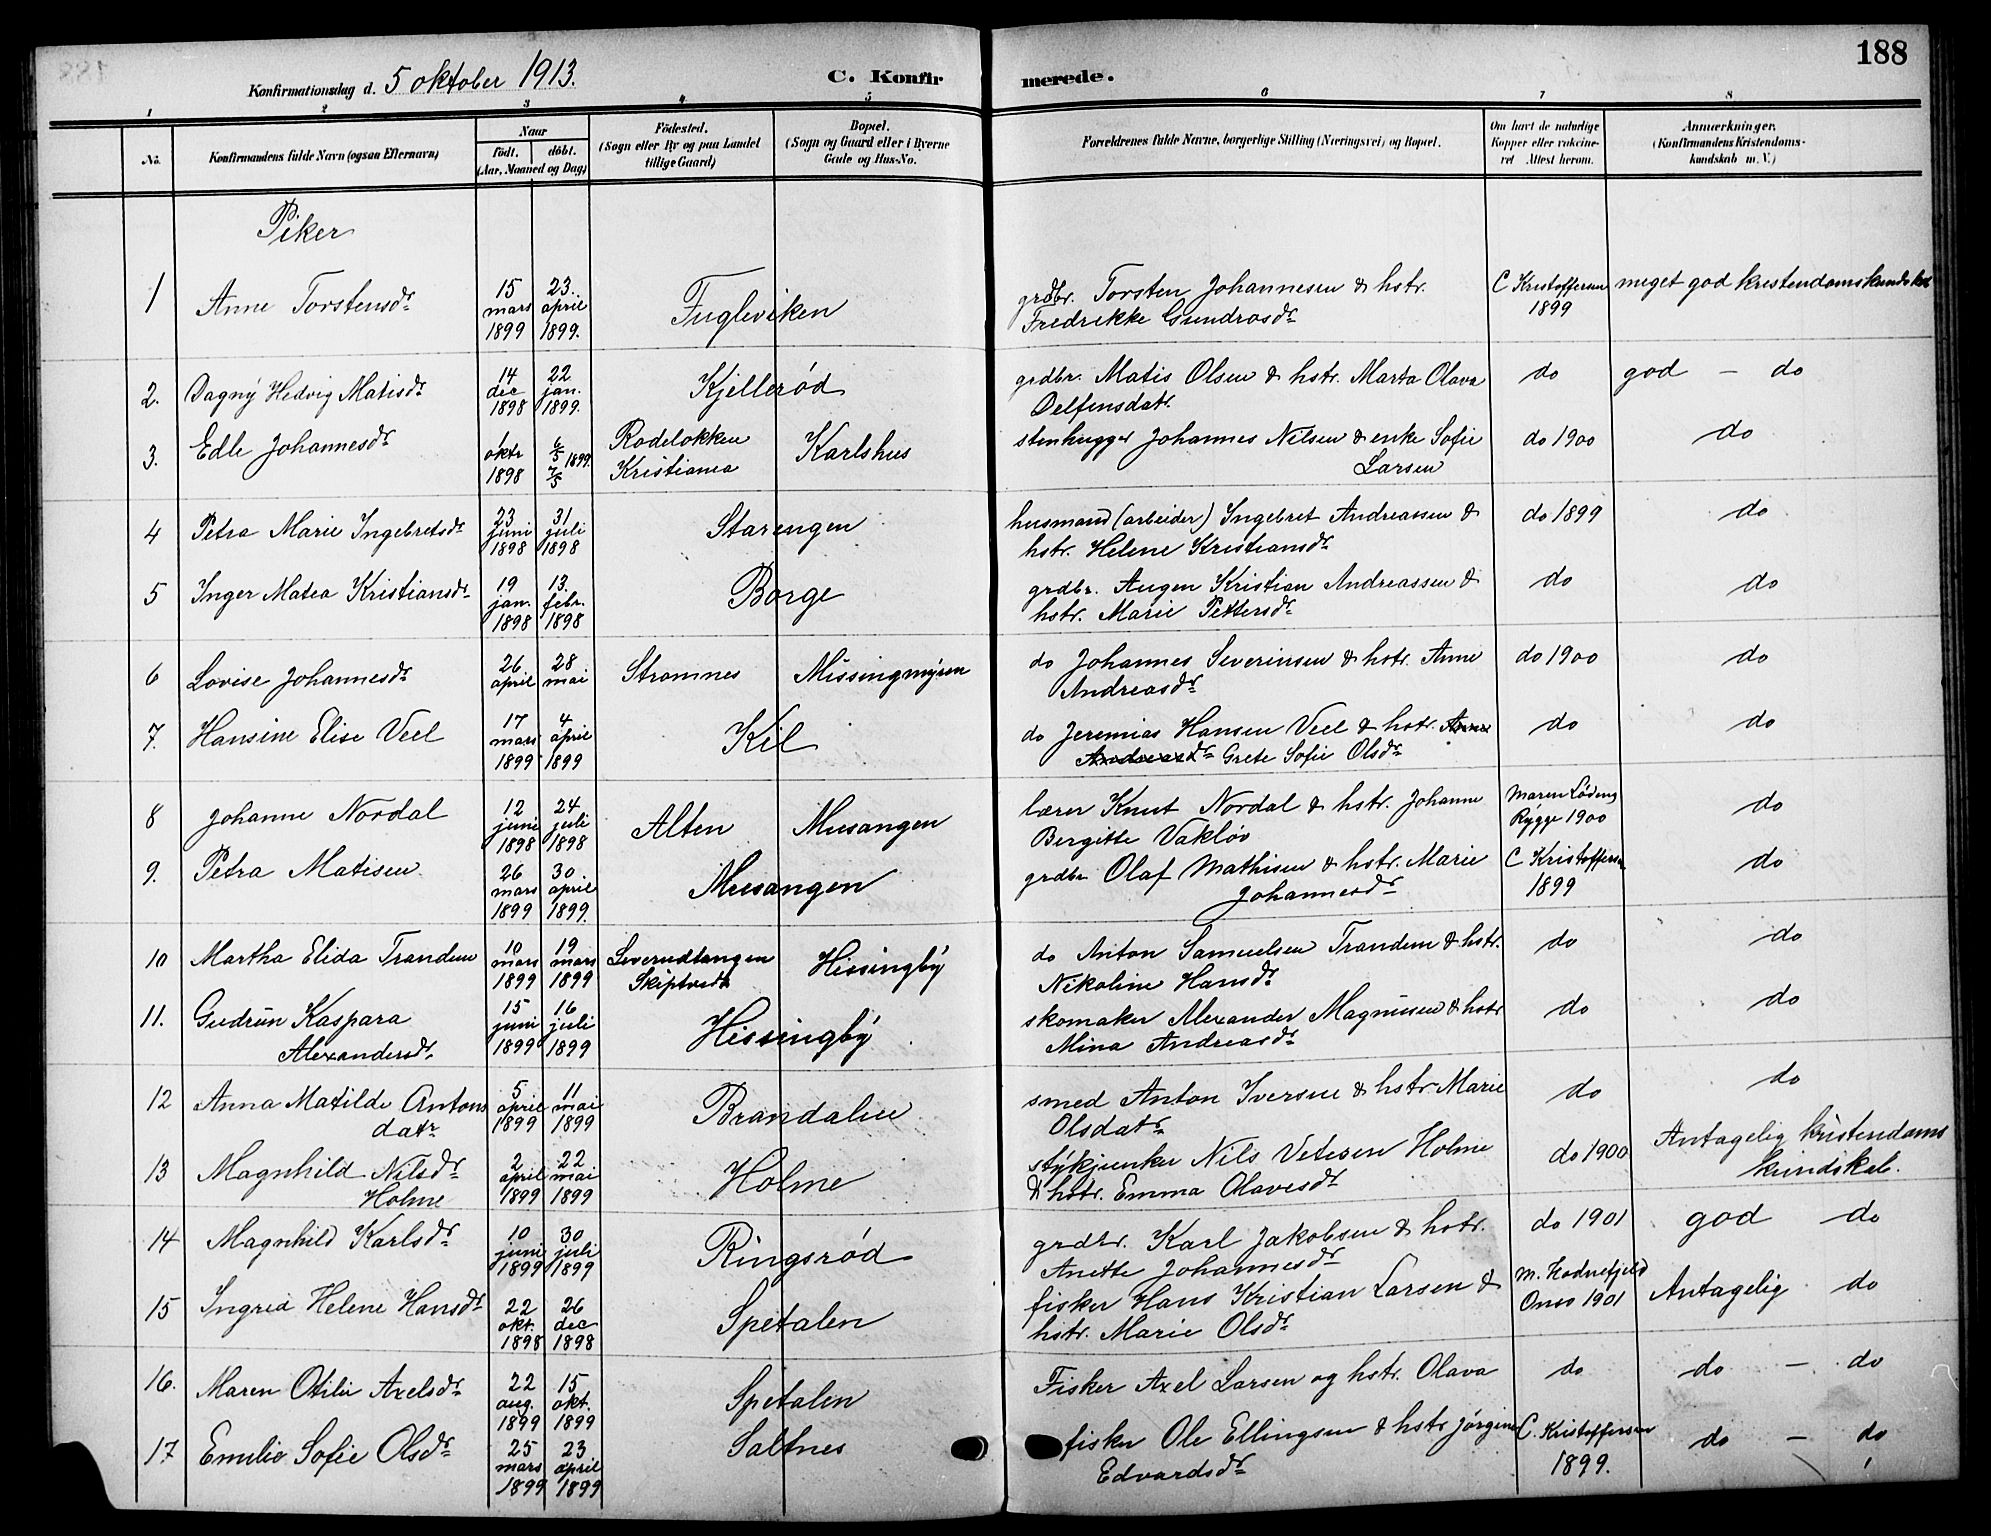 188
Konfirmationsdag d. 5 oktober 1913.
C. Konfirmerede.
1 2 3 4 5 6 7 8
No. Konfirmandens fulde Navn (ogsaa Efternavn)
Naar født. døbt. (Aar, Maaned og Dag)
Fødested. (Sogn eller By og paa Landet tillige Gaard)
Bopæl. (Sogn og Gaard eller i Byerne Gade og Hus-No.
Forældrenes fulde Navne, borgerlige Stilling (Næringsvei) og Bopæl.
Om havt de naturlige Kopper eller vaccineret Attest herom.
Anmærkninger. (Konfirmandens Kristendomskundskab m. V.)
Piker
1 Anne Torstensdr 15 mars 1899 23. april 1899. Fugleviken grdbr. Torsten Johannesen & hstr. C Kristoffersen 1899 meget god kristendomskundskab
Fredrikke Gundrosdr
2. Dagny Hedvig Matisdr 14 dec 1898 22 jan. 1899. Kjellerød grdbr. Matis Olsen & hstr. Marta Olava do god — do
Delfensdatr.
3. Edle Johannesdr 1 oktr 1898 6/5 7/5 1899. Rodeløkken Kristiania Karlshus stenhugger Johannes Nilsen & enke Sofie do 1900 do
Larsen
4 Petra Marie Ingebretsdr 23 juni 1898 31 juli 1898 Starengen husmand (arbeider) Ingebret Andreassen & do 1899 do
hstr. Helene Kristiansdr
5 Inger Matea Kristiansdr 19 jan. 1898 13. febr. 1898 Borge grdbr. Augen Kristian Andreassen & do do
hstr. Marie Pettersdr
6 Lovise Johannesdr 26 april 28 mai Stromnes Missingmyren do Johannes Severinsen & hstr. Anne do 1900 do
Andreasdr
7. Hansine Elise Veel 17 mars 1899 4 april 1899 Kil do Jeremias Hansen Veel & hstr. Anne do do
Andreasdr Grete Sofie Olsdr
8 Johanne Nordal 12 juni 1898 24 juli 1898 Alten Musangen lærer Knut Nordal & hstr. Johanne Maren Løding Rygge 1900 do
Bergitte Vakløv
9. Petra Matisen 26 mars 1899 30. april 1899. Musangen grdbr Olaf Mathisen & hstr. Marie C Kristoffersen 1899 do
Johannesdr
10 Martha Elida Trandem 10 mars 1899 19 mars 1899 Leverudtangen Skiptvedt Hissingby do Anton Samuelsen Trandem & hstr. do do
Nikoline Hansdr
11. Gudrun Kaspara Alexandersdr. 15 juni 1899 16 juli 1899 Hissingby skomaker Alexander Magnusen & hstr do do
Mina Andreasdr
12 Anna Matilde Antonsdatr 5 april 1899 11 mai 1899 Brandalen smed Anton Iversen & hstr Marie do do
Olsdatr
13 Magnhild Nilsdr Holme 2 april 1899 22 mai 1899 Holme stykjunker Nils Vetesen Holme do 1900 Antagelig kristendomskundskab.
& hstr. Emma Olavesdr
14 Magnhild Karlsdr 10 juni 1899 30 juli 1899 Ringsrød grdbr. Karl Jakobsen & hstr. do 1901 god do
Anette Johannesdr
15 Ingrid Helene Hansdr 22 okt. 1898 26 dec 1898 Spetalen fisker Hans Kristian Larsen & M. Hodnefjeld Onsø 1901 Antagelig do
hstr. Marie Olsdr
16. Maren Otilie Axelsdr 22 aug. 1899 15 okt. 1899 Spetalen Fisker Axel Larsen og hstr. Olava do do — do
17 Emilie Sofie Olsdr 25 mars 1899 23 april 1899 Saltnes fisker Ole Ellingsen & hstr Jørgine C. Kristoffersen 1899. do — do
Edvardsdr